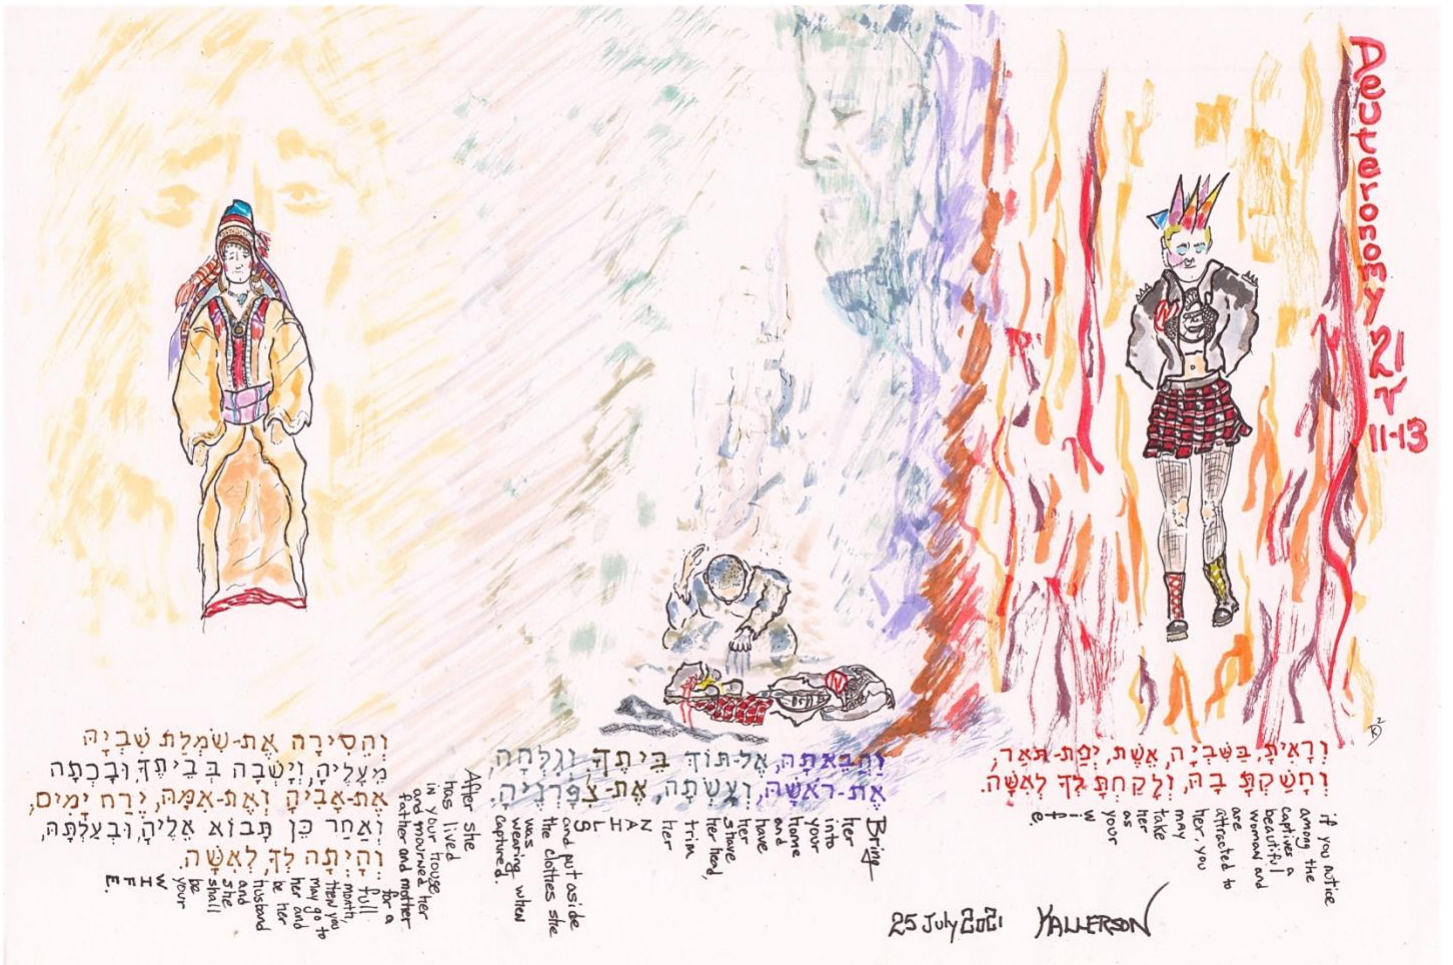 Deuteronomy 21 v 11-13
וְרָאִיתָ, בַּשִּׁבְיָה, אֵשֶׁת, יְפַת-תֹּאַר,
וְחָשַׁקְתָּ בָהּ, וְלָקַחְתָּ לְךָ לְאִשָּׁה.
if you notice
among the
captives a
beautiful
woman and
are
attracted to
her, you
may
take
her
as
your
wife.
וַהֲבֵאתָהּ, אֶל-תּוֹךְ בֵּיתֶךָ וְגִלְּחָה,
אֶת-רֹאשָׁהּ, וְעָשְׂתָה, אֶת-צִפָּרְנֶיהָ.
Bring
her
into
your
home
and
have
her
shave
her head,
trim
her
NAILS
and put aside
the clothes she
was
wearing when
captured.
וְהֵסִירָה אֶת-שִׂמְלַת שִׁבְיָהּ
מֵעָלֶיהָ, וְיָשְׁבָה בְּבֵיתֶךָ, וּבָכְתָה
אֶת-אָבִיהָ וְאֶת-אִמָּהּ, יֶרַח יָמִים,
וְאַחַר כֵּן תָּבוֹא אֵלֶיהָ, וּבְעַלְתָּהּ,
וְהָיְתָה לְךָ לְאִשָּׁה.
After she
has lived
in your house,
and mourned her
father and mother
for a
full
month,
then you
may go to
her and
be her
husband
and
she
shall
be
your
WIFE.
25 July 2021 KALLERSON